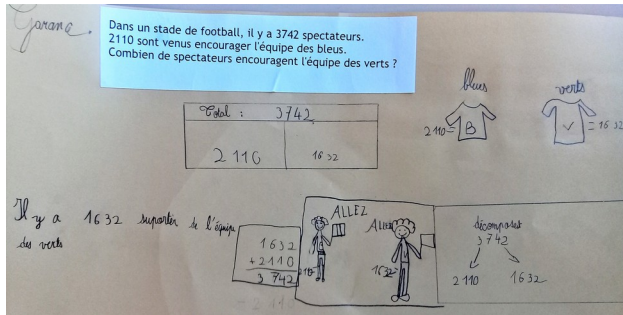 Garance.
Dans un stade de football, il y a 3742 spectateurs.
2110 sont venus encourager l'équipe des bleus.
Combien de spectateurs encouragent l'équipe des verts ?
bleus
verts
Total : 3742
2110
1632
2110=
B
V
= 1632
Il y a 1632 suportér de l'équipe
des verts
1632
+2110
3742
ALLEZ
2110
1632
décomposer
3742
2110
1632